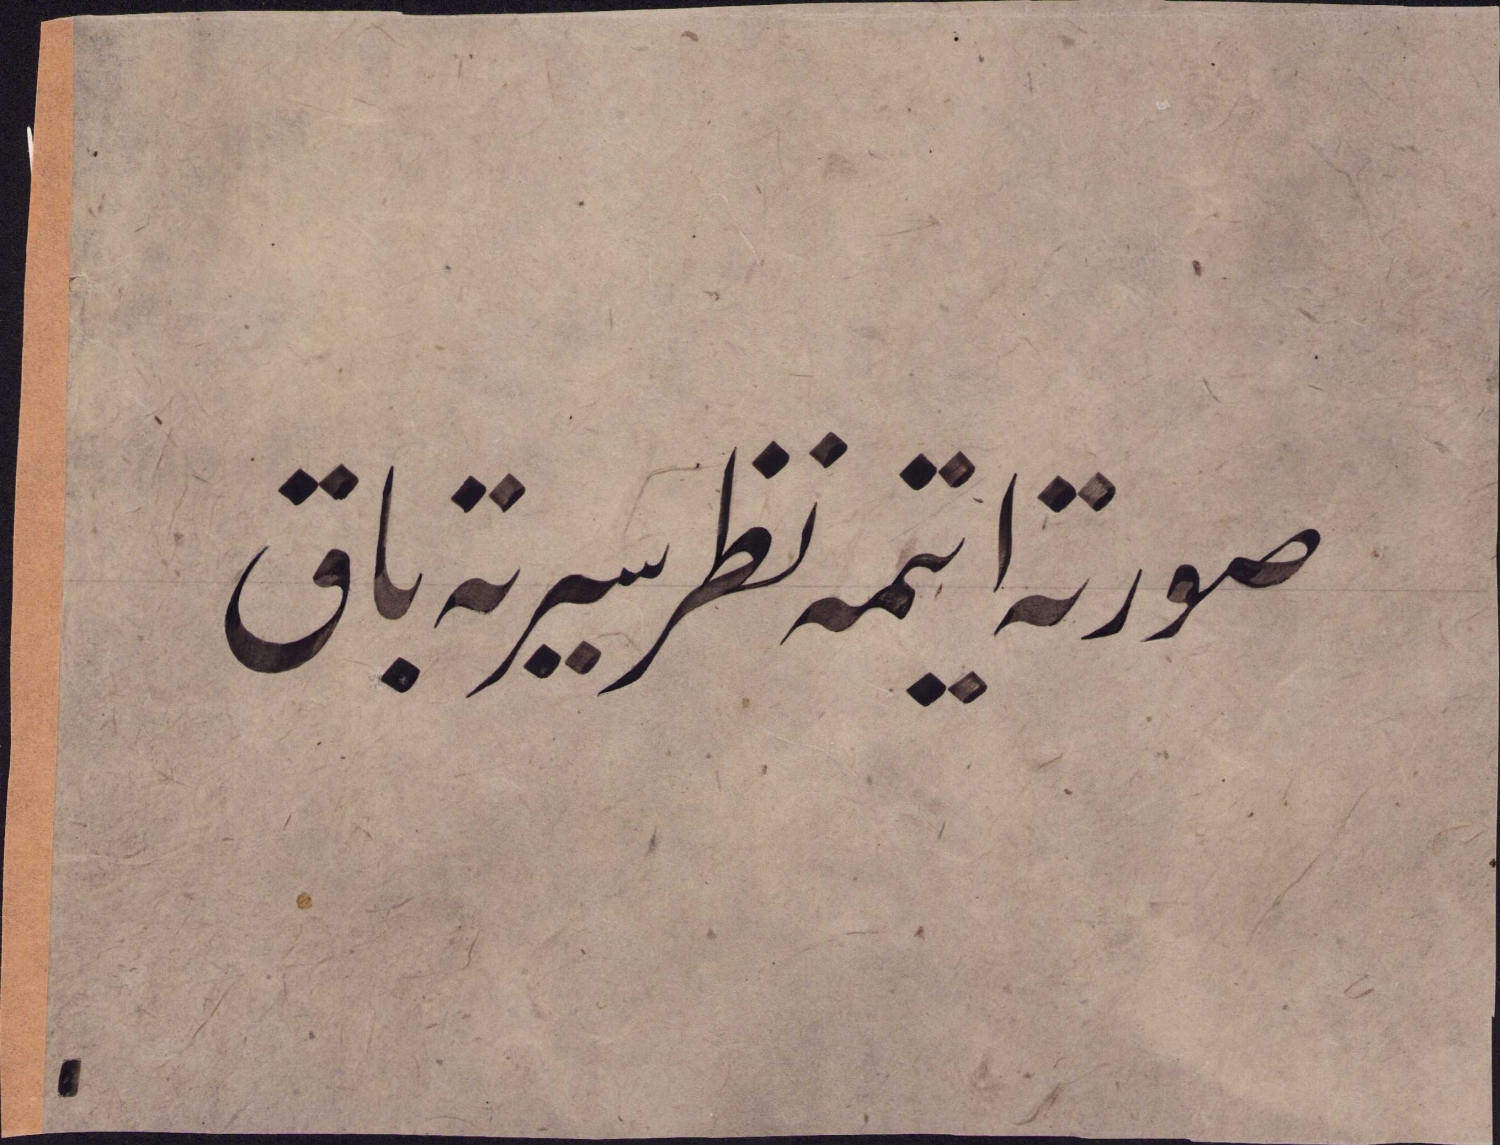 صورته ایتمه نظر سیرته باق